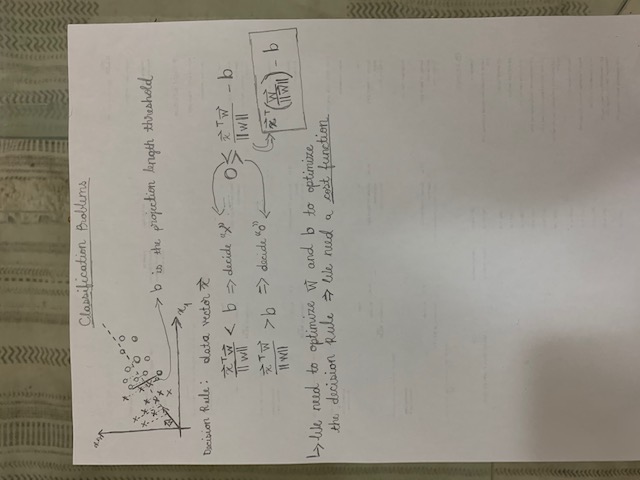 Classification Problems
x₂
b is the projection length threshold
x₁
Decision Rule: data vector x⃗
x⃗ᵀw⃗ / ||w⃗|| < b ⇒ decide "x"
0 ≶ x⃗ᵀw⃗ / ||w⃗|| - b
x⃗ᵀw⃗ / ||w⃗|| > b ⇒ decide "o"
x⃗ᵀ(w⃗ / ||w⃗||) - b
↳ We need to optimize w⃗ and b to optimize
the decision Rule ⇒ We need a cost function